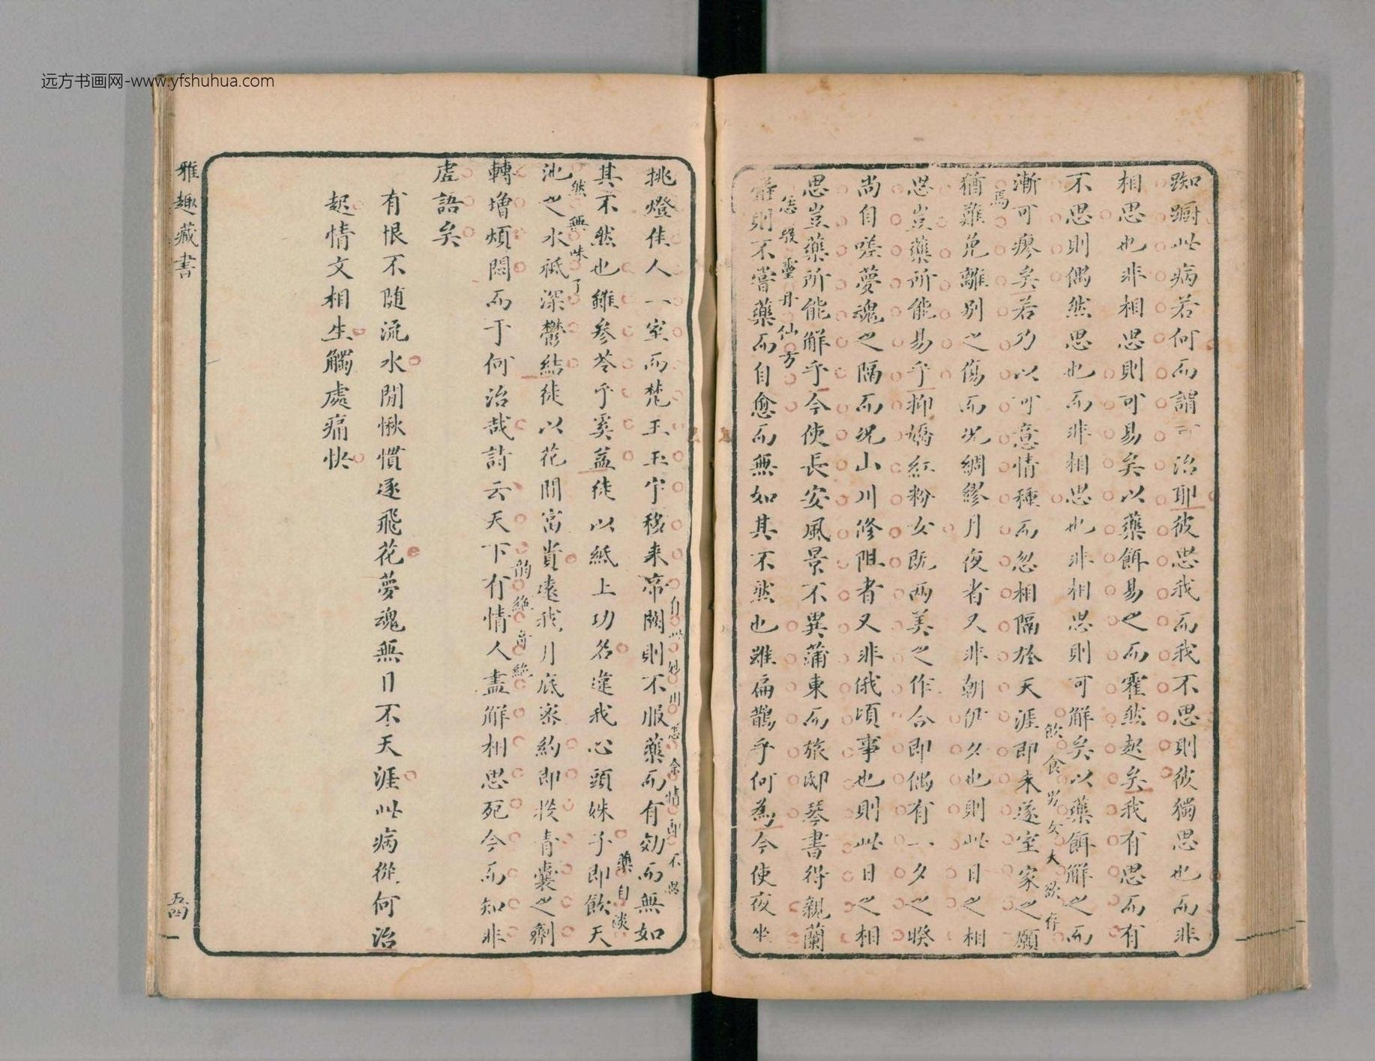 远方书画网-www.yfshuhua.com
踟蹰此病若何而謂可治耶彼思我而我不思則彼獨思也而非
相思也非相思則可易矣以藥餌易之而霍然起矣我有思而有
不思則偶然思也而非相思也非相思則可解矣以藥餌解之而
漸可瘳矣若乃以可意情種而忽相隔於天涯即未遂室家之願
飲食男女大欲存
焉
猶難免離別之傷而况綢繆月夜者又非朝伊夕也則此日之相
思豈藥所能易乎抑嬌紅粉女既兩美之作合即偶有一夕之暌
尚自嗟夢魂之隔而况山川修阻者又非俄頃事也則此日之相
思豈藥所能解乎今使長安風景不異蒲東而旅邸琴書得親蘭
怎殺靈丹仙方
則不嘗藥而自愈而無如其不然也雖扁鵲乎何為今使夜坐
挑燈佳人一室而梵王玉宇移来帝闕則不服藥而有効而無如
自此妙用恐余情郎不
其不然也雖参苓乎奚益徒以紙上功名違我心頭姝子即飲天
藥自淡
然無味了
池之水祗深鬱結徒以花間富貴遠我月底密約即投青囊之劑
轉增煩悶而于何治哉詩云天下有情人盡解相思死今而知非
韵絶奇絶
虛語矣
有恨不随流水閒愀慣逐飛花夢魂無日不天涯此病從何治
起情文相生觸處痛快
雅趣藏書
五四